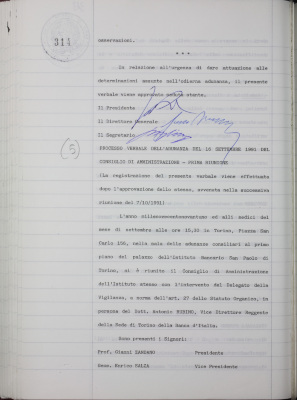 314
osservazioni.
* * *
In relazione all'urgenza di dare attuazione alle
determinazioni assunte nell'odierna adunanza, il presente
verbale viene approvato seduta stante.
Il Presidente
Il Direttore Generale
Il Segretario
(5)
PROCESSO VERBALE DELL'ADUNANZA DEL 16 SETTEMBRE 1981 DEL
CONSIGLIO DI AMMINISTRAZIONE - PRIMA RIUNIONE
(La registrazione del presente verbale viene effettuata
dopo l'approvazione dello stesso, avvenuta nella successiva
riunione del 7/10/1981)
L'anno millenovecentoottantuno ed alli sedici del
mese di settembre alle ore 10,30 in Torino, Piazza San
Carlo 156, nella sala delle adunanze consiliari al primo
piano del palazzo dell'Istituto Bancario San Paolo di
Torino, si è riunito il Consiglio di amministrazione
dell'Istituto stesso con l'intervento del Delegato della
Vigilanza, a norma dell'art. 27 dello Statuto Organico, in
persona del Dott. Antonio Vice Direttore Reggente
della Sede di Torino della Banca d'Italia.
Sono presenti i Signori:
Prof. Gianni ZANDANO Presidente
Enrico Vice Presidente